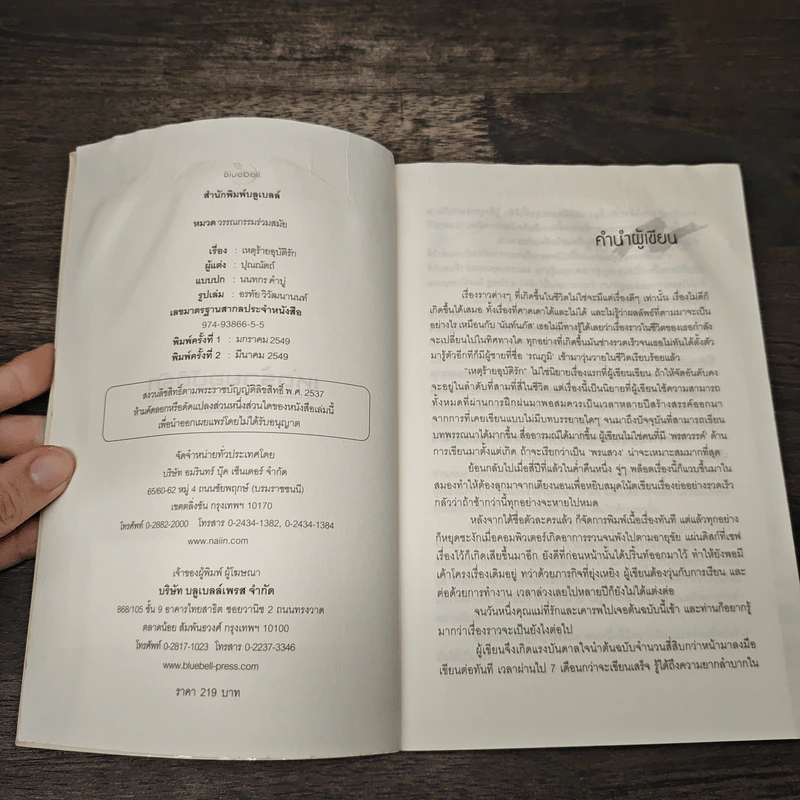 Bluebell
สำนักพิมพ์บลูเบลล์
หมวด วรรณกรรมร่วมสมัย
เรื่อง : เหตุร้ายอุบัติรัก
ผู้แต่ง : ปุณณัตถ์
แบบปก : นนทกร คำบู่
รูปเล่ม : อรทัย วิวัฒนานนท์
เลขมาตรฐานสากลประจำหนังสือ
974-93866-5-5
พิมพ์ครั้งที่ 1 : มกราคม 2549
พิมพ์ครั้งที่ 2 : มีนาคม 2549
สงวนลิขสิทธิ์ตามพระราชบัญญัติลิขสิทธิ์ พ.ศ. 2537
ห้ามคัดลอกหรือดัดแปลงส่วนหนึ่งส่วนใดของหนังสือเล่มนี้
เพื่อนำออกเผยแพร่โดยไม่ได้รับอนุญาต
จัดจำหน่ายทั่วประเทศโดย
บริษัท อมรินทร์ บุ๊ค เซ็นเตอร์ จำกัด
65/60-62 หมู่ 4 ถนนชัยพฤกษ์ (บรมราชชนนี)
เขตตลิ่งชัน กรุงเทพฯ 10170
โทรศัพท์ 0-2882-2000 โทรสาร 0-2434-1382, 0-2434-1384
www.naiin.com
เจ้าของผู้พิมพ์ ผู้โฆษณา
บริษัท บลูเบลล์เพรส จำกัด
868/105 ชั้น 9 อาคารไทยสาธิต ซอยวานิช 2 ถนนทรงวาด
ตลาดน้อย สัมพันธวงศ์ กรุงเทพฯ 10100
โทรศัพท์ 0-2817-1023 โทรสาร 0-2237-3346
www.bluebell-press.com
ราคา 219 บาท
คำนำผู้เขียน
เรื่องราวต่างๆ ที่เกิดขึ้นในชีวิตไม่ใช่จะมีแต่เรื่องดีๆ เท่านั้น เรื่องไม่ดีก็
เกิดขึ้นได้เสมอ ทั้งเรื่องที่คาดเดาได้และไม่ได้ และไม่รู้ว่าผลลัพธ์ที่ตามมาจะเป็น
อย่างไร เหมือนกับ 'นันท์นภัส' เธอไม่มีทางรู้ได้เลยว่าเรื่องราวในชีวิตของเธอกำลัง
จะเปลี่ยนไปในทิศทางใด ทุกอย่างที่เกิดขึ้นมันช่างรวดเร็วจนเธอไม่ทันได้ตั้งตัว
มารู้ตัวอีกทีก็มีผู้ชายที่ชื่อ 'รณภูมิ' เข้ามาวุ่นวายในชีวิตเรียบร้อยแล้ว
"เหตุร้ายอุบัติรัก" ไม่ใช่นิยายเรื่องแรกที่ผู้เขียนเขียน ถ้าให้จัดอันดับคง
จะอยู่ในลำดับที่สามที่สี่ในชีวิต แต่เรื่องนี้เป็นนิยายที่ผู้เขียนใช้ความสามารถ
ทั้งหมดที่ผ่านการฝึกฝนมาพอสมควรเป็นเวลาหลายปีสร้างสรรค์ออกมา
จากการที่เคยเขียนแบบไม่มีบทบรรยายใดๆ จนมาถึงปัจจุบันที่สามารถเขียน
บทพรรณนาได้มากขึ้น สื่ออารมณ์ได้มากขึ้น ผู้เขียนไม่ใช่คนที่มี 'พรสวรรค์' ด้าน
การเขียนมาตั้งแต่เกิด ถ้าจะเรียกว่าเป็น 'พรแสวง' น่าจะเหมาะสมมากที่สุด
ย้อนกลับไปเมื่อสี่ปีที่แล้วในค่ำคืนหนึ่ง จู่ๆ พล็อตเรื่องนี้ก็แวบขึ้นมาใน
สมองทำให้ต้องลุกมาจากเตียงนอนเพื่อหยิบสมุดโน้ตเขียนเรื่องย่ออย่างรวดเร็ว
กลัวว่าถ้าช้ากว่านี้ทุกอย่างจะหายไปหมด
หลังจากได้ชื่อตัวละครแล้ว ก็จัดการพิมพ์เนื้อเรื่องทันที แต่แล้วทุกอย่าง
ก็หยุดชะงักเมื่อคอมพิวเตอร์เกิดอาการรวนจนพังไปตามอายุขัย แผ่นดิสก์ที่เซฟ
เรื่องไว้ก็เกิดเสียขึ้นมาอีก ยังดีที่ก่อนหน้านั้นได้ปริ้นท์ออกมาไว้ ทำให้ยังพอมี
เค้าโครงเรื่องเดิมอยู่ ทว่าด้วยภารกิจที่ยุ่งเหยิง ผู้เขียนต้องวุ่นกับการเรียน และ
ต่อด้วยการทำงาน เวลาล่วงเลยไปหลายปีก็ยังไม่ได้แต่งต่อ
จนวันหนึ่งคุณแม่ที่รักและเคารพไปเจอต้นฉบับนี้เข้า และท่านก็อยากรู้
มากกว่าเรื่องราวจะเป็นยังไงต่อไป
ผู้เขียนจึงเกิดแรงบันดาลใจนำต้นฉบับจำนวนสี่สิบกว่าหน้ามาลงมือ
เขียนต่อทันที เวลาผ่านไป 7 เดือนกว่าจะเขียนเสร็จ รู้ได้ถึงความยากลำบากใน